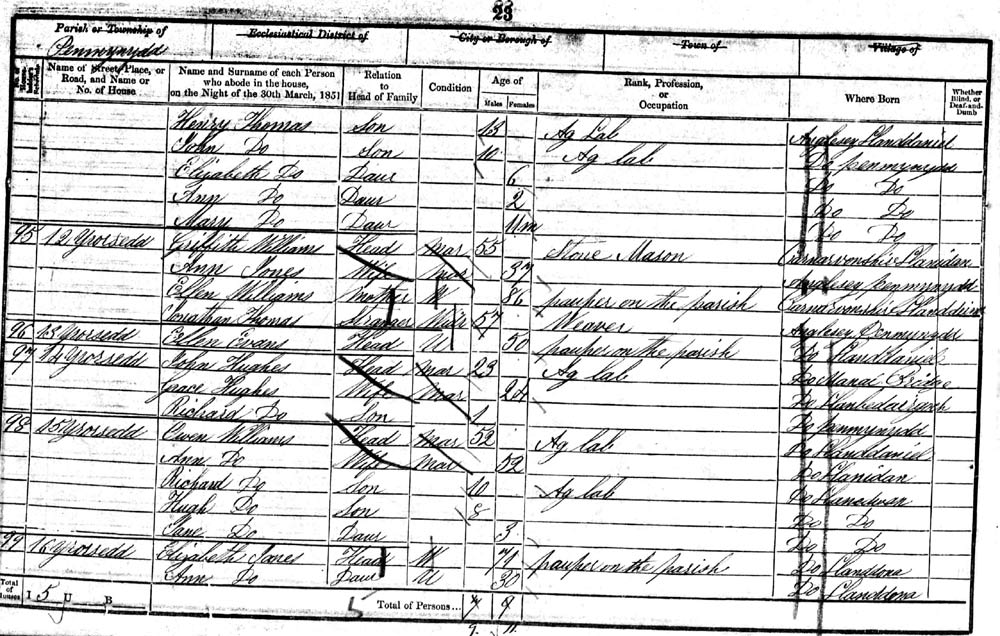 23
Parish or Township of Ecclesiastical District of City or Borough of Town of Village of
Penmynydd
Name of Street, Place, or Road, and Name or No. of House Name and Surname of each Person who abode in the house, on the Night of the 30th March, 1851 Relation to Head of Family Condition Age of Males Females Rank, Profession, or Occupation Where Born Whether Blind, or Deaf-and-Dumb
Henry Thomas Son 13 Ag Lab Anglesey Llanddaniel
John Do Son 10 Ag lab Do penmynydd
Elizabeth Do Daur 6 Do Do
Ann Do Daur 2 Do Do
Mary Do Daur 11m Do Do
95 12 Yrorsedd Griffith Williams Head Mar 55 Stone Mason Carnarvonshire Llanidan
Ann Jones Wife Mar Anglesey penmynydd
Ellen Williams Mother W 86 pauper on the parish Carnarvonshire
Jonathan Thomas Stranger 57 Weaver Anglesey Penmynydd
96 13 Yrorsedd Ellen Evans Head U 50 pauper on the parish Do Llanddaniel
97 14 Yrorsedd John Hughes Head Mar 23 Ag lab Do Menai Bridge
Grace Hughes Wife Mar 24 Do
Richard Do Son 1 Do penmynydd
98 15 Yrorsedd Owen Williams Head Mar 52 Ag lab Do Llanddaniel
Ann Do Wife Mar 52 Do Llanidan
Richard Do Son 10 Ag lab Do
Hugh Do Son 8 Do Do
Jane Do Daur 3 Do Do
99 16 Yrorsedd Elizabeth Jones Head W 71 pauper on the parish Do Llanddona
Ann Do Daur U 30 Do Llanddona
Total of Houses I 5 U B 5 Total of Persons... 9
9 11